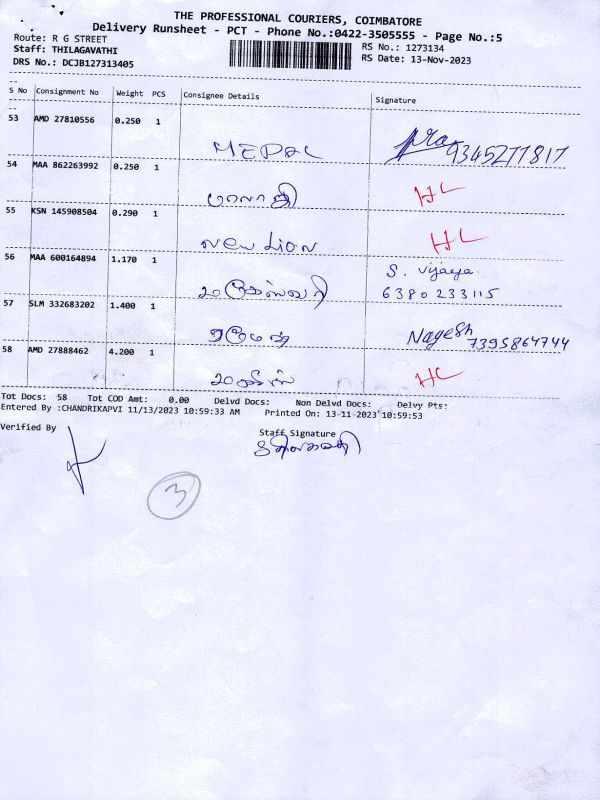 THE PROFESSIONAL COURIERS, COIMBATORE
Delivery Runsheet - PCT - Phone No.:0422-3505555 - Page No.:5
Route: R G STREET
RS No.: 1273134
Staff: THILAGAVATHI
RS Date: 13-Nov-2023
DRS No.: DCJB127313405
S No Consignment No Weight PCS Consignee Details Signature
53 AMD 27810556 0.250 1
9345277817
54 MAA 862263992 0.250 1
மாலாதி HL
55 KSN 145908504 0.290 1
New Lion HL
56 MAA 600164894 1.170 1 S. Vijaya
மகேஸ்வரி 6380 233115
57 SLM 332683202 1.400 1
ரமேஷ் Nagesh 7395864744
58 AMD 27888462 4.200 1
HL
Tot Docs: 58 Tot COD Amt: 0.00 Delvd Docs: Non Delvd Docs: Delvy Pts:
Entered By :CHANDRIKAPVI 11/13/2023 10:59:33 AM Printed On: 13-11-2023 10:59:53
Verified By Staff Signature
திலகவதி
3